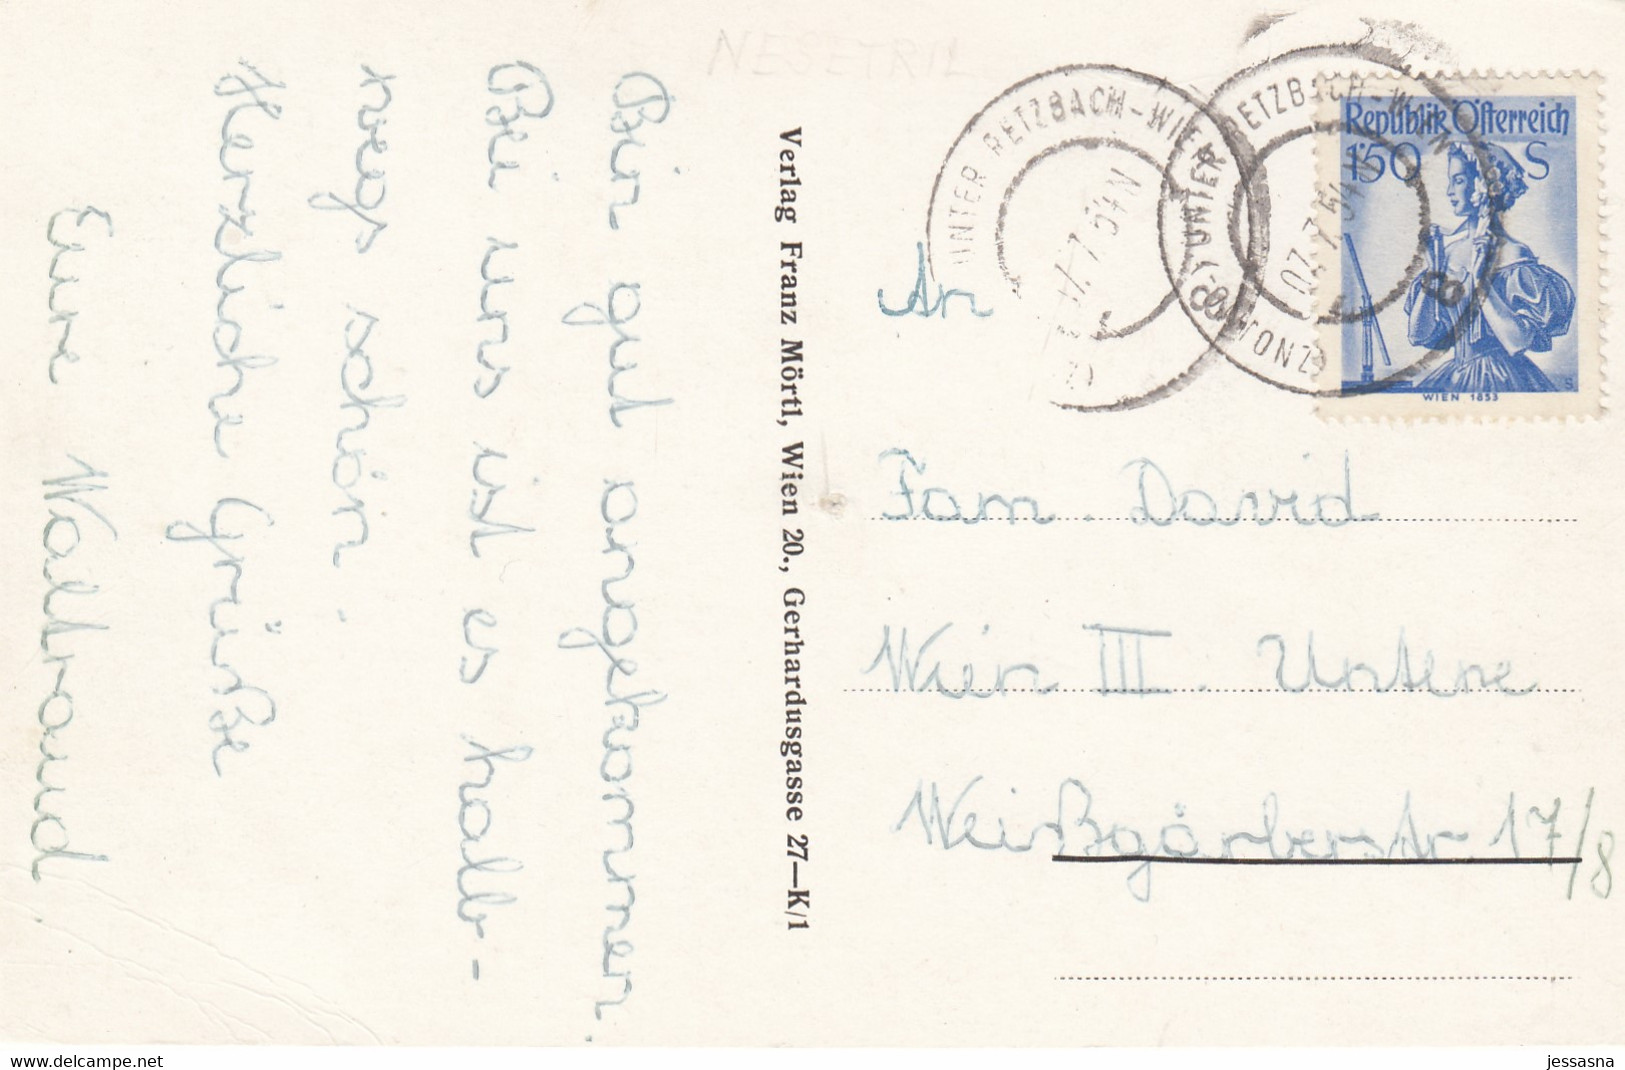 NESETRIL
Bin gut angekommen.
Bei uns ist es halb-
wegs schön.
Herzliche Grüße
Eure Waltraud
Verlag Franz Mörtl, Wien 20., Gerhardusgasse 27—K/1
UNTER RETZBACH-WIEN
UNTER RETZBACH-WIEN
Republik Österreich
1'50 S
WIEN 1853
An
Fam. David
Wien III. Untere
Weißgärberstr. 17/8
delcampe.net
jessasna